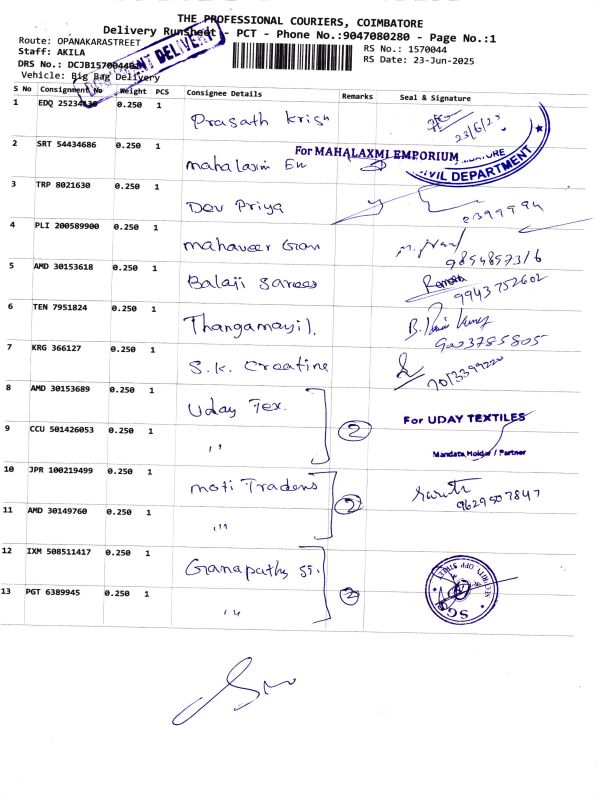 THE PROFESSIONAL COURIERS, COIMBATORE
Delivery Runsheet - PCT - Phone No.:9047080280 - Page No.:1
Route: OPANAKARASTREET
RS No.: 1570044
Staff: AKILA
RS Date: 23-Jun-2025
DRS No.: DCJB1570044
DELIVERY
Vehicle: Big Bag Delivery
S No Consignment No Weight PCS Consignee Details Remarks Seal & Signature
1 EDQ 25234 0.250 1 Prasath Krish 23/6/25
2 SRT 54434686 0.250 1 mahalaxmi Em For MAHALAXMI EMPORIUM
CIVIL DEPARTMENT
3 TRP 8021630 0.250 1 Dev Priya
4 PLI 200589900 0.250 1 mahaveer 9854857316
5 AMD 30153618 0.250 1 Balaji Sarees 9943752602
6 TEN 7951824 0.250 1 Thangamayil. 9003785805
7 KRG 366127 0.250 1 S.K. Creatine
8 AMD 30153689 0.250 1 Uday Tex. 2 For UDAY TEXTILES
9 CCU 501426053 0.250 1 ,, Mandate Holder / Partner
10 JPR 100219499 0.250 1 moti Traders 2 9629507847
11 AMD 30149760 0.250 1 ,,,
12 IXM 508511417 0.250 1 Ganapathy St. 2
13 PGT 6389945 0.250 1 ,,